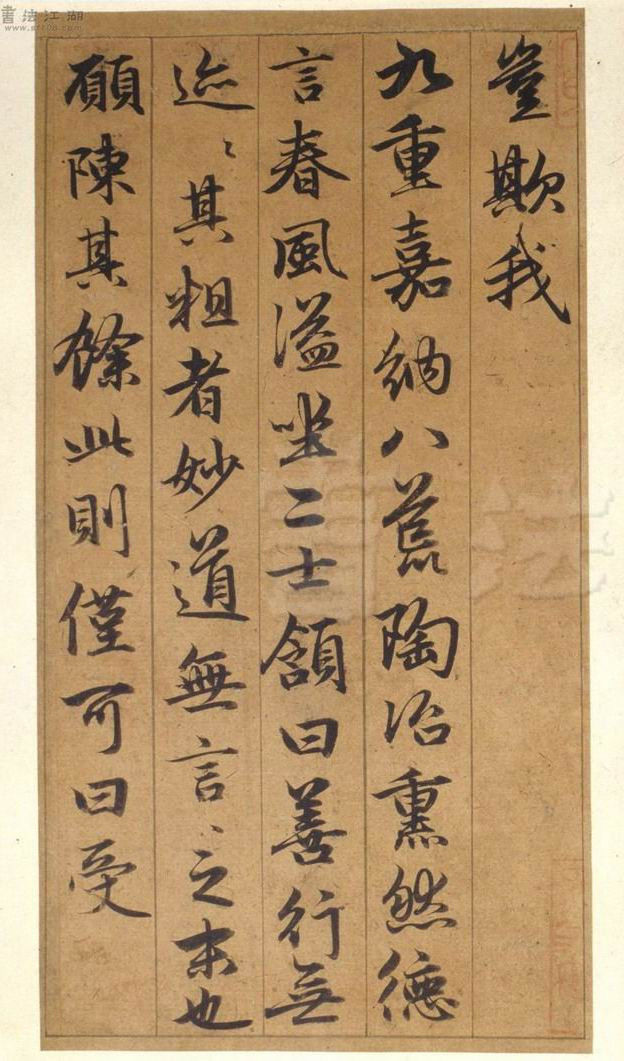 書法江湖
豈欺我
九重嘉納八荒陶冶熏然德
言春風溢坐二士頷曰善行無
迹〻其粗者妙道無言〻之末也
願陳其餘此則僅可曰受
書法